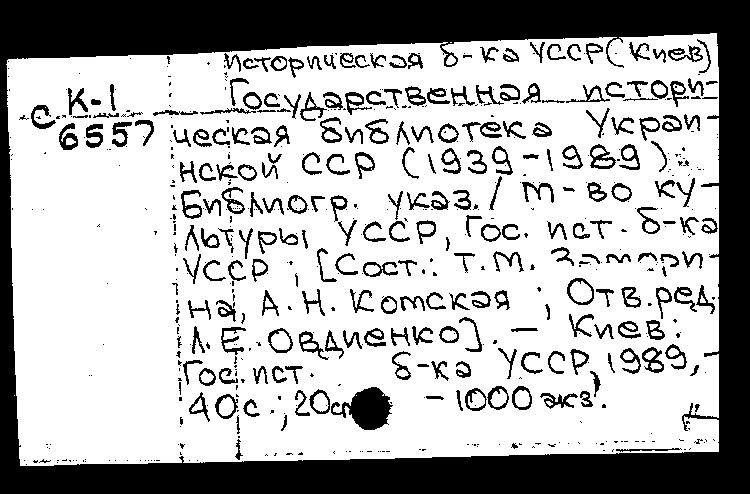 Историческая б-ка УССР (Киев)
с К-1
6557
Государственная истори-
ческая библиотека Украи-
нской ССР (1939-1989) :
Библиогр. указ. / М-во ку-
льтуры УССР, Гос. ист. б-ка
УССР ; [Сост.: Т.М. Замори-
на, А.Н. Комская ; Отв.ред.
Л.Е. Овдиенко]. — Киев:
Гос. ист. б-ка УССР, 1989, -
40 с. ; 20см - 1000 экз.